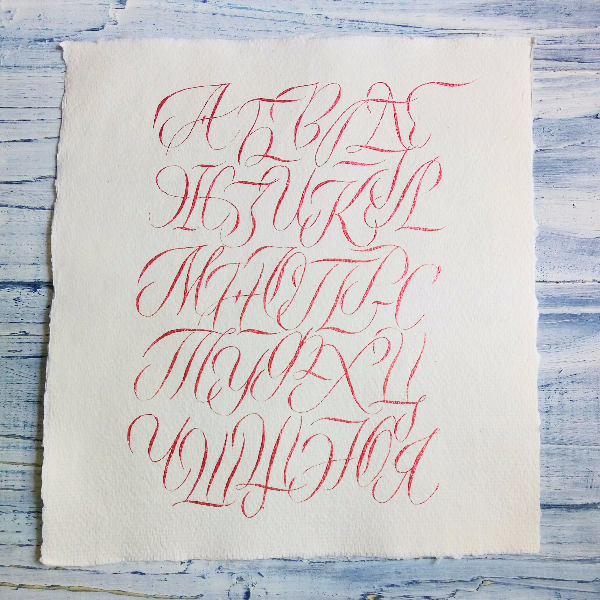 АБВГДЕ
ЖЗИКЛ
МНОПРС
ТУФХЦ
ЧШЩЭЮЯ